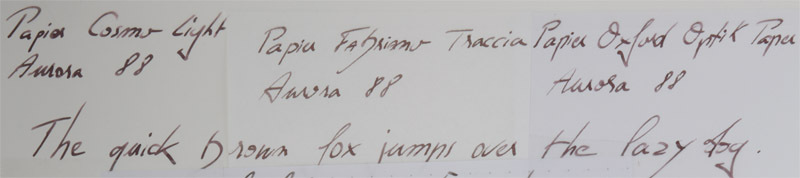 Papier Cosmo Light
Aurora 88
Papier Fabriano Traccia
Aurora 88
Papier Oxford Optik Paper
Aurora 88
The quick brown fox jumps over the lazy dog.